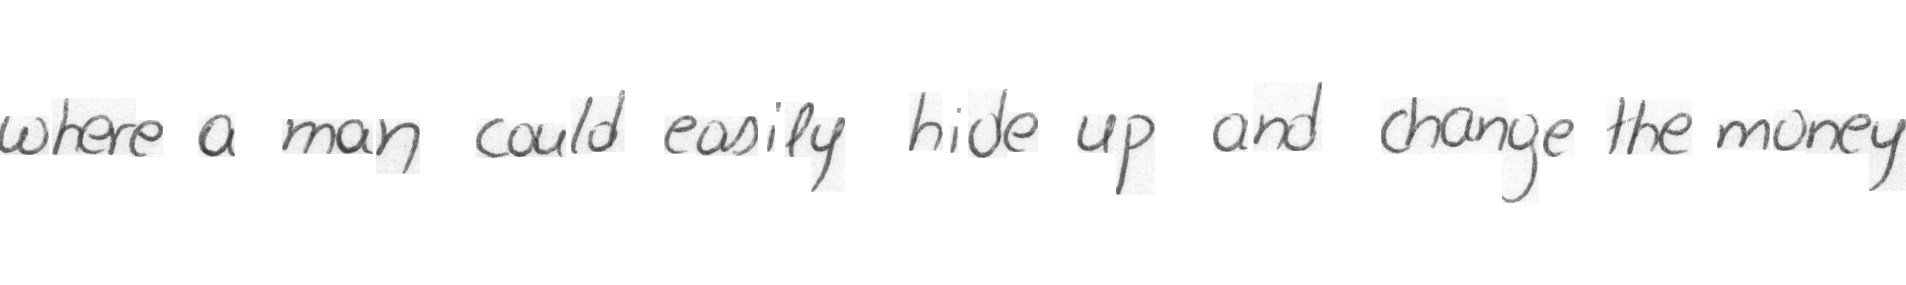 where a man could easily hide up and change the money